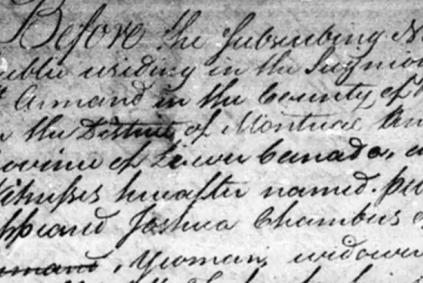 Before the Subscribing N
ublic residing in the Seignio
t Armand in the County of
n the District of Montreal an
rovince of Lower Canada, a
Witnesses hereafter named. pe
appeared Joshua Chambers o
rmand, Yeoman, widower